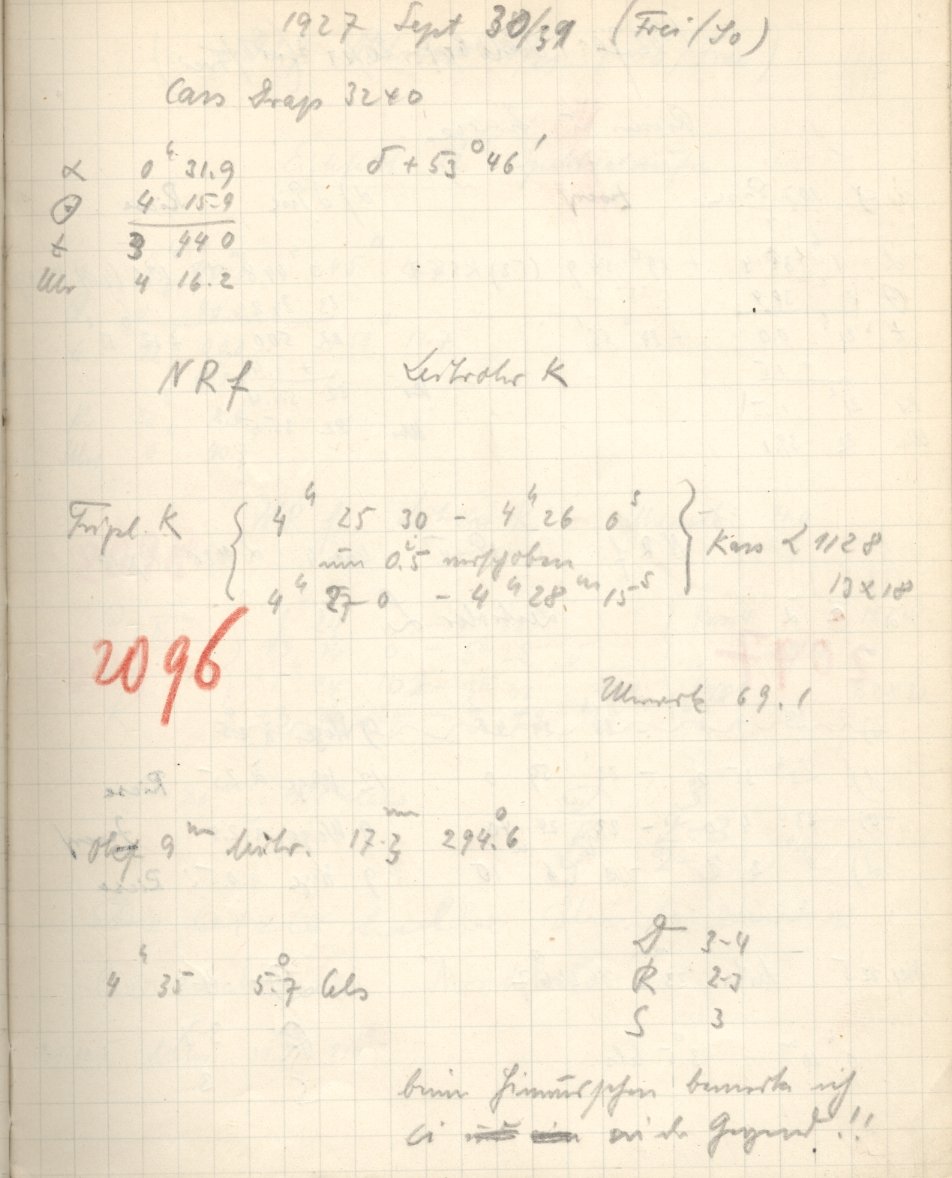 1927 Sept 30/31 (Frei/So)
Cass Drap 3240
α 0ʰ 31.9 δ + 53° 46'
4 15.9
3 44 0
Uhr 4 16.2
NRf Leitrohr K
Tripl. K 4ʰ 25 30 - 4ʰ 26 0ˢ
um 0.5 verschoben
4ʰ 27 0 - 4ʰ 28ᵐ 15ˢ
Kass L 1128
13 x 18
2096
Uhrwerk 69.1
9ᵐ 17.3 294.6°
4ʰ 35 5.7° Cels
D 3-4
R 2-3
S 3
beim bemerke ich
Gegend!!